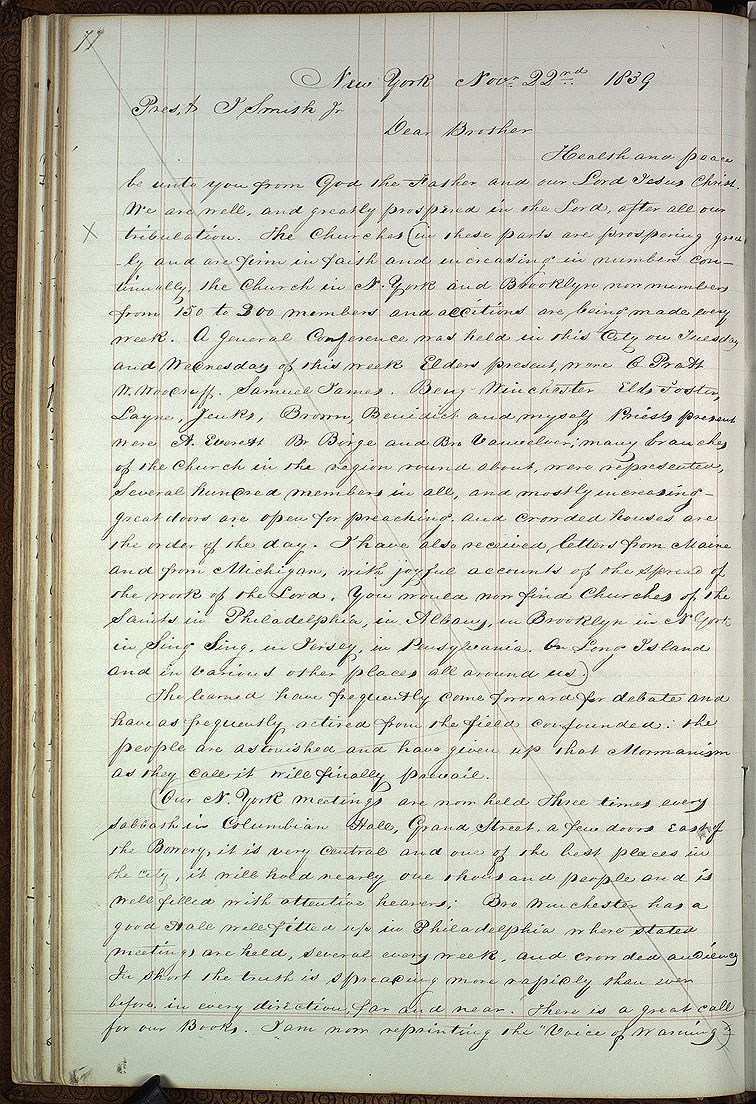 77
New York Novr. 22nd 1839
Pres,t J Smith Jr
Dear Brother
Health and peace
be unto you from God the Father and our Lord Jesus Christ.
We are well, and greatly prospered in the Lord, after all our
tribulation. The Churches (in these parts are prospering great
-ly and are firm in faith and increasing in numbers con-
tinually, the Church in N. York and Brooklyn now members
from 150 to 200 members and additions are being made every
week. A general Conference was held in this City on Tuesday
and Wednesday of this week Elders present, were O Pratt
W. Woodruff. Samuel James. Benj. Winchester Elds Foster,
Layne, Jenks, Brown, Benidict and myself Priests present
were A. Everett Br Birge and Bro Vanvelver; many branches
of the Church in the region round about, were represented,
several hundred members in all, and mostly increasing-
great doors are open for preaching. and crowded houses are
the order of the day. I have also received letters from Maine
and from Michigan, with joyful accounts of the spread of
the work of the Lord. You would now find Churches of the
Saints in Philadelphia, in Albany, in Brooklyn in N York
in Sing Sing, in Jersey, in Pensylvania. On Long Island
and in various other places all around us).
The learned have frequently come forward for debate and
have as frequently retired from the field confounded: the
people are astonished and have given up that Mormanism
as they call it will finally prevail.
(Our N. York meetings are now held three times every
sabbath in Columbian Hall, Grand Street, a few doors East of
the Bowery, it is very central and one of the best places in
the city, it will hold nearly one thousand people and is
well filled with attentive hearers; Bro Winchester has a
good Hall well fitted up in Philadelphia where stated
meetings are held, several every week, and crowded audiency
In short the truth is spreading more rapidly than ever
before in every direction, far and near. There is a great call
for our Books. I am now reprinting the "Voice of Warning)